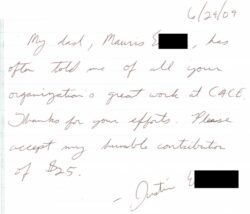 6/29/09
My dad, Mauris E, has
often told me of all your
organization's great work at CACE.
Thanks for your efforts. Please
accept my humble contribution
of $25.
- Justin E